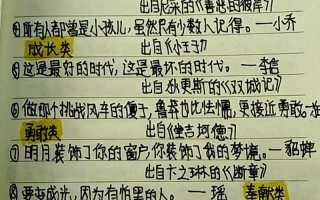 出自尼采的《善恶的彼岸》
④所有人都曾是小孩儿,虽然只有少数人记得。—小乔
成长类 出自《小王子》
⑤这是最好的时代,这是最坏的时代。—李
出自狄更斯的《双城记》
⑥做那个挑战风车的傻子,鲁莽也比怯懦,更接近勇敢。
勇敢类 出自《堂吉诃德》
⑦明月装饰了你的窗户,你装饰了我的梦境。—貂蝉
出自卞之琳的《断章》
⑧要变成光,因为有怕黑的人。—瑶 奉献类